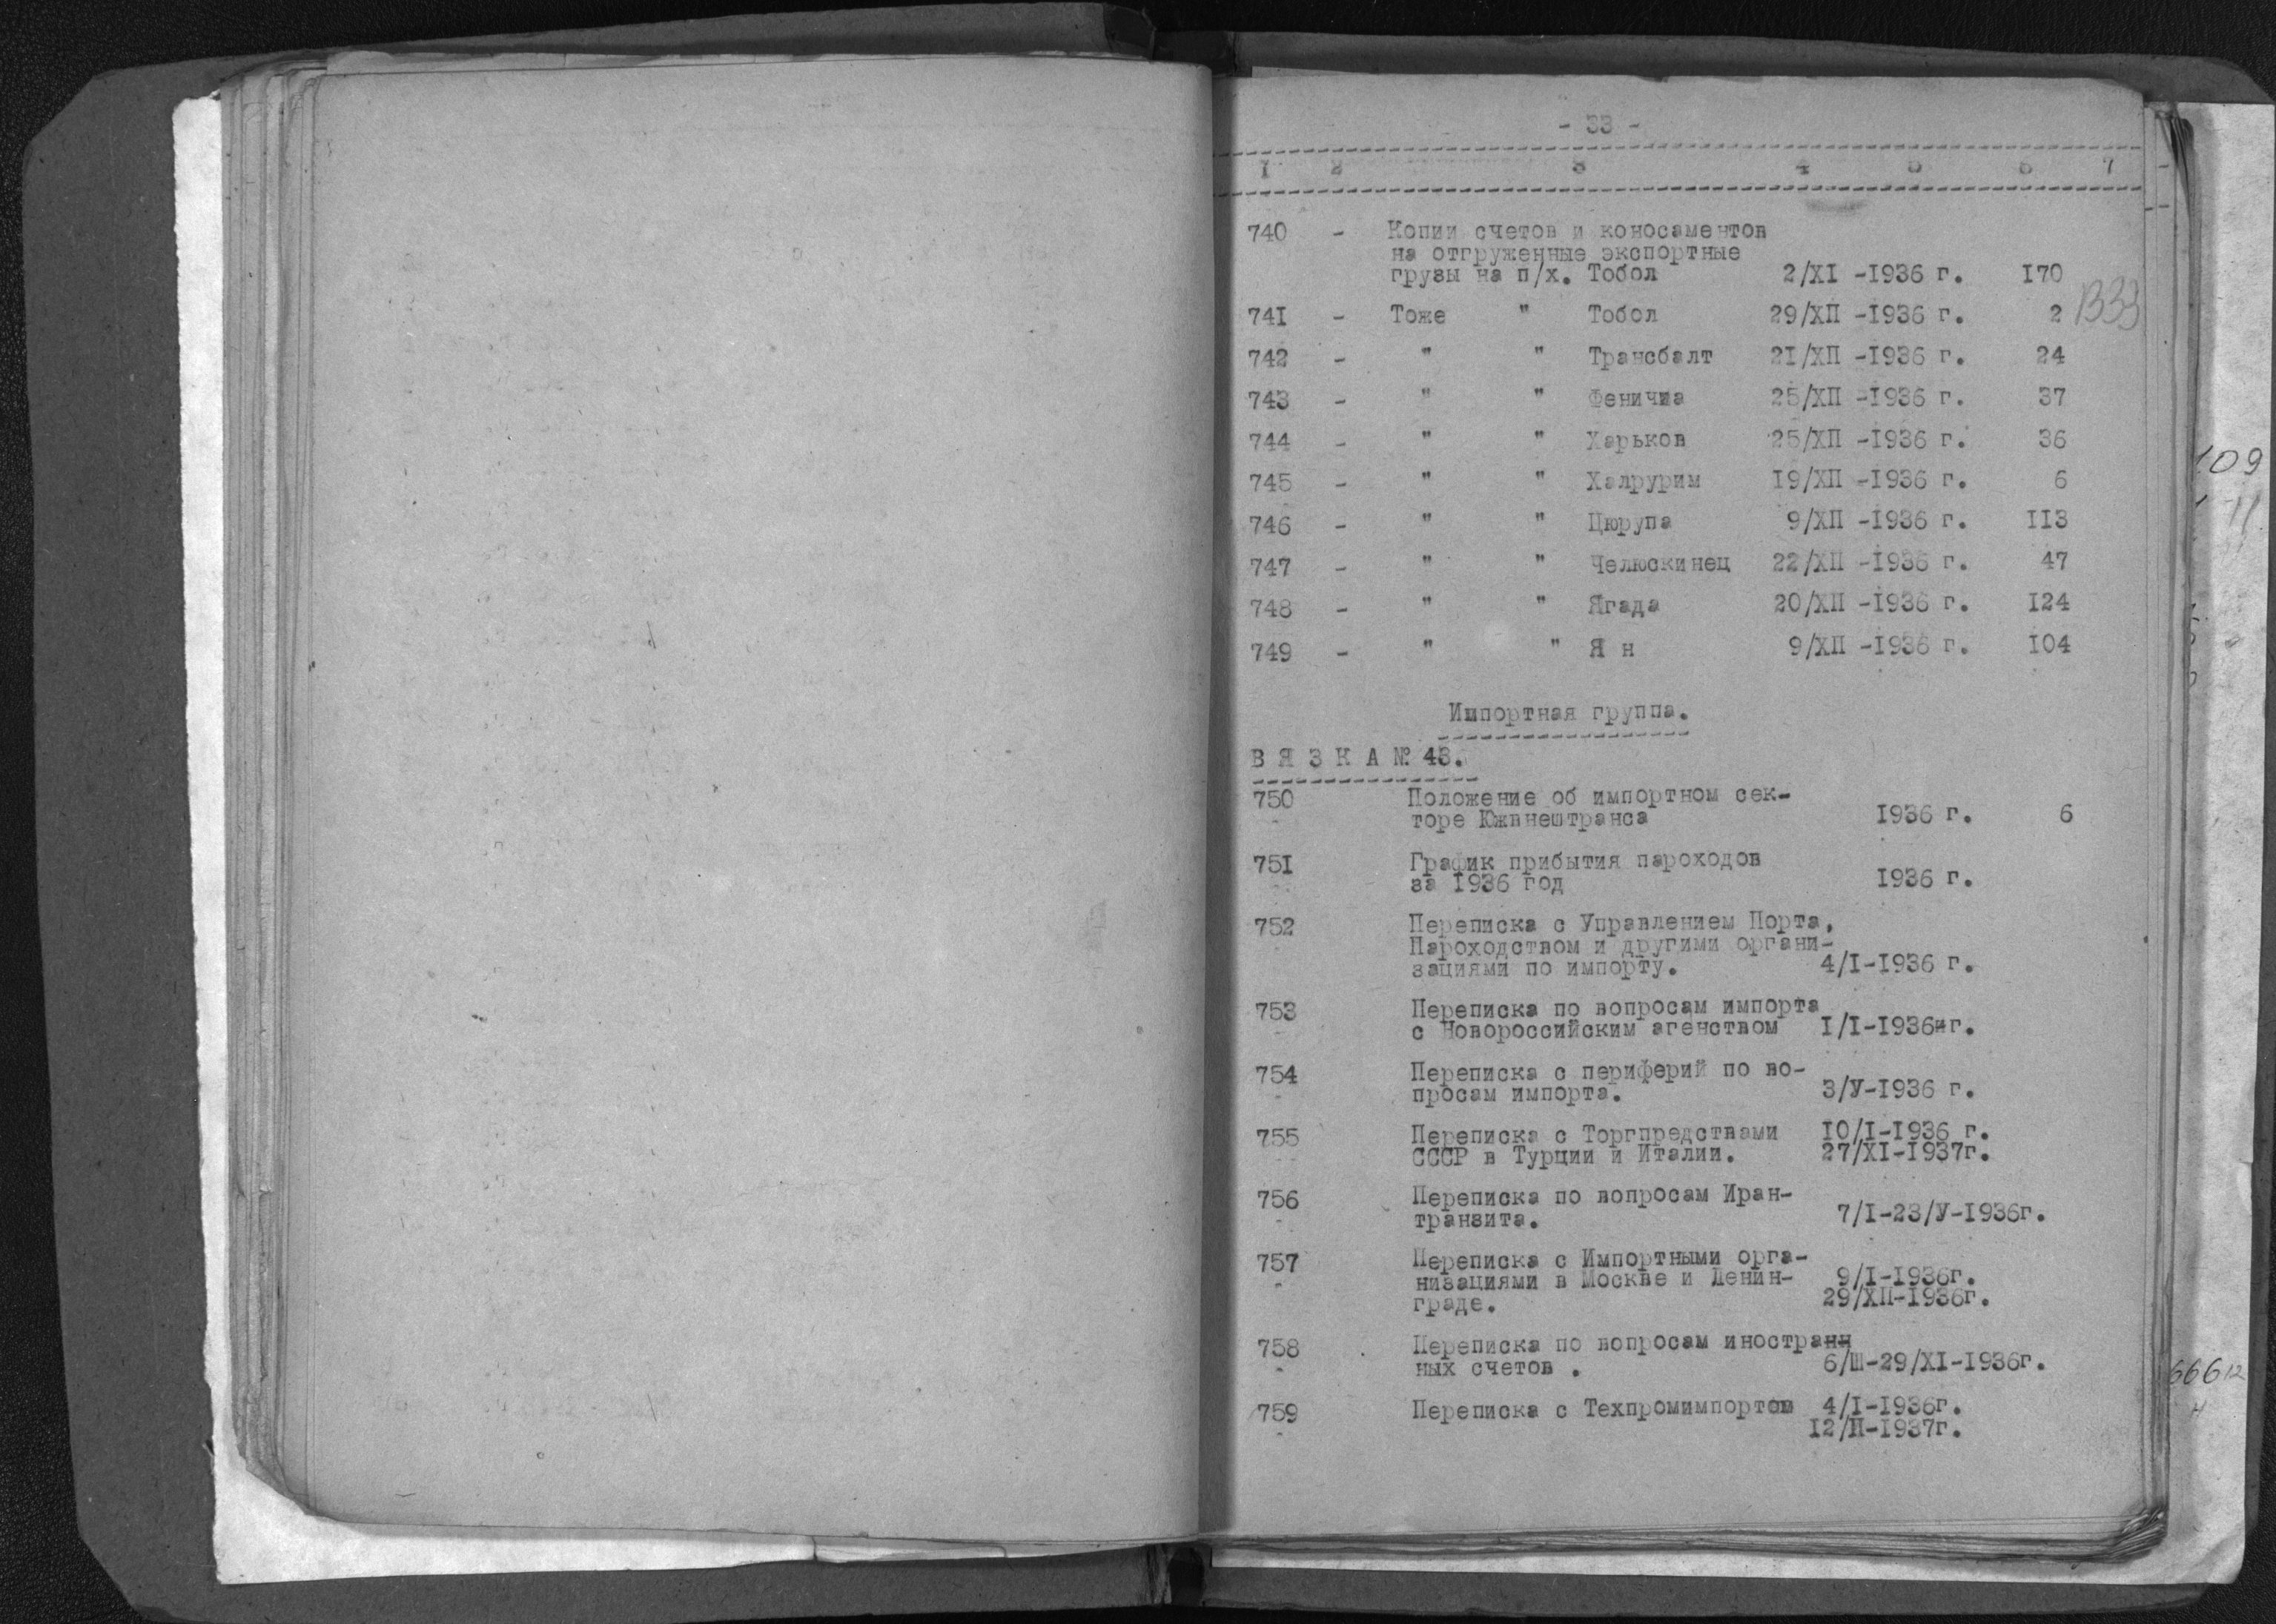 - 33 -
1 2 3 4 5 6 7
740 - Копии счетов и коносаментов
на отгруженные экспортные
грузы на п/х. Тобол 2/XI -1936 г. 170
741 - Тоже " Тобол 29/XII -1936 г. 2
1333
742 - " " Трансбалт 21/XII -1936 г. 24
743 - " " Феничиа 25/XII -1936 г. 37
744 - " " Харьков 25/XII -1936 г. 36
745 - " " Халрурим 19/XII -1936 г. 6
746 - " " Цюрупа 9/XII -1936 г. 113
747 - " " Челюскинец 22/XII -1936 г. 47
748 - " " Ягада 20/XII -1936 г. 124
749 - " " Я н 9/XII -1936 г. 104
Импортная группа.
В Я З К А № 43.
750 Положение об импортном сек-
- торе Южвнештранса 1936 г. 6
751 График прибытия пароходов
- за 1936 год 1936 г.
752 Переписка с Управлением Порта,
Пароходством и другими органи-
зациями по импорту. 4/I-1936 г.
753 Переписка по вопросам импорта
- с Новороссийским агенством 1/I-1936г.
754 Переписка с периферий по во-
- просам импорта. 3/У-1936 г.
755 Переписка с Торгпредствами 10/I-1936 г.
- СССР в Турции и Италии. 27/XI-1937г.
756 Переписка по вопросам Иран-
- транзита. 7/I-23/У-1936г.
757 Переписка с Импортными орга-
- низациями в Москве и Ленин- 9/I-1936г.
граде. 29/XII-1936г.
758 Переписка по вопросам иностранн
- ных счетов . 6/Ш-29/XI-1936г.
759 Переписка с Техпромимпортом 4/I-1936г.
- 12/П-1937г.
109
11
666